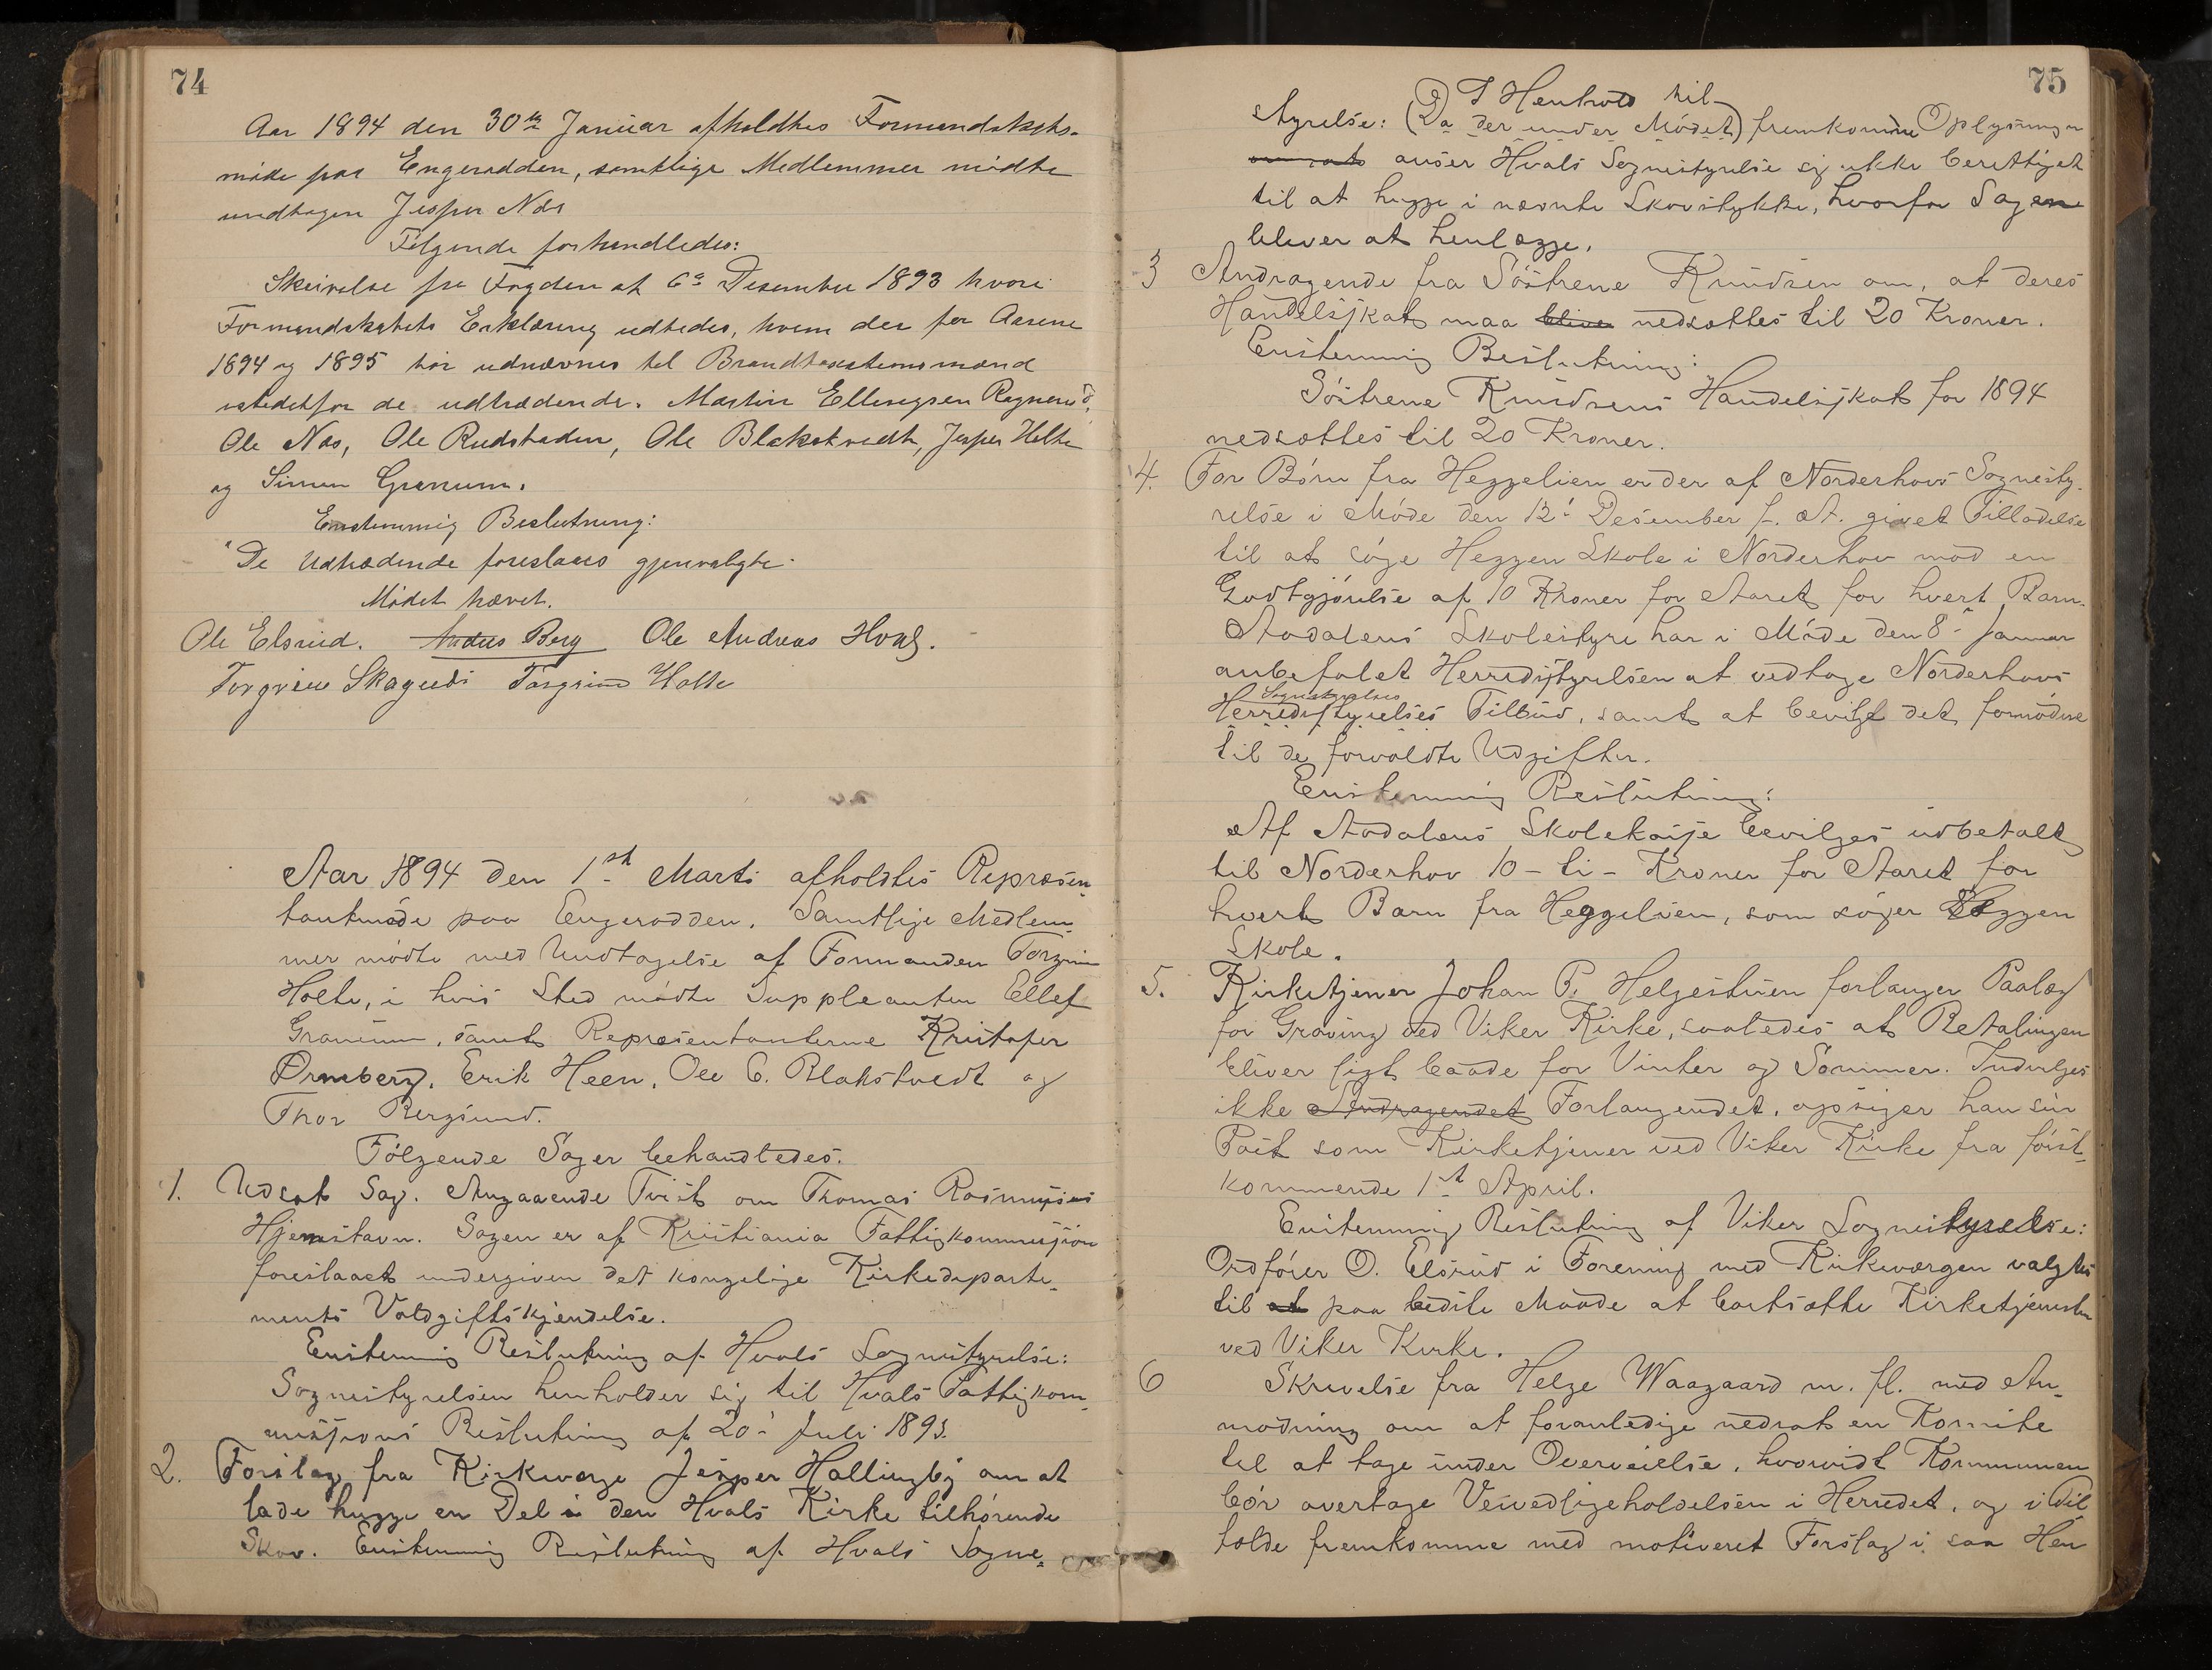 74
Aar 1894 den 30te Januar afholdtes Formandskabs-
møde paa Engerodden, samtlige Medlemmer mødte
undtagen Jesper Næs
Følgende forhandledes:
Skrivelse fra Fogden af 6te Desember 1893 hvori
Formandskabets Erklæring udbedes, hvem der for Aarene
1894 og 1895 bør udnævnes til Brandtaxationsmænd
istedetfor de udtrædende. Martin Ellingsen Ragnerud,
Ole Næs, Ole Rudstaden, Ole Blakstvedt, Jesper Holte
og Simen Granum.
Enstemmig Beslutning:
De Udtrædende foreslaaes gjenvalgte.
Mødet hævet.
Ole Elsrud. Anders Berg Ole Andreas Hval.
Torgrim Skagnæs Torgrim Holte
Aar 1894 den 1ste Marts afholdtes Repræsen-
tantmøde paa Engerodden. Samtlige Medlem-
mer mødte med Undtagelse af Formanden Torgrim
Holte, i hvis Sted mødte Suppleanten Ellef
Granum, samt Repræsentanterne Kristofer
Ormberg, Erik Heen, Ole E. Blakstvedt og
Thor Bergsund.
Følgende Sager behandledes.
1. Udsat Sag. Angaaende Tvist om Thomas Rasmussens
Hjemstavn. Sagen er af Kristiania Fattigkommission
foreslaaet undergiven det kongelige Kirkedeparte-
ments Voldgiftskjendelse.
Enstemmig Beslutning af Hvals Sognestyrelse:
Sognestyrelsen henholder sig til Hvals Fattigkom-
missions Beslutning af 20de Juli 1893.
2. Forslag fra Kirkeværge Jesper Hallingby om at
lade hugge en Del i den Hvals Kirke tilhørende
Skov. Enstemmig Beslutning af Hvals Sogne-
75
I Henhold til
styrelse: (Da der under Mødet) fremkomne Oplysninger
anser Hvals Sognestyrelse sig ikke berettiget
til at hugge i nævnte Skovstykke, hvorfor Sagen
bliver at henlægge.
3 Andragende fra Søstrene Knudsen om, at deres
Handelsskat maa bliver nedsættes til 20 Kroner.
Enstemmig Beslutning:
Søstrene Knudsens Handelsskat for 1894
nedsættes til 20 Kroner.
4. For Børn fra Heggelien er der af Norderhovs Sognesty-
relse i Møde den 12te Desember f. A. givet Tilladelse
til at søge Heggen Skole i Norderhov mod en
Godtgjørelse af 10 Kroner for Aaret for hvert Barn.
Aadalens Skolestyre har i Møde den 8de Januar
anbefalet Herredsstyrelsen at vedtage Norderhovs
Sognestyrelses
Herredsstyrelses Tilbud, samt at bevilge det fornødne
til de forvoldte Udgifter.
Enstemmig Beslutning:
Af Aadalens Skolekasse bevilges udbetalt
til Norderhov 10 - ti - Kroner for Aaret for
hvert Barn fra Heggelien, som søger Heggen
Skole.
5. Kirketjener Johan P. Helgestuen forlanger Paalæg
for Graving ved Viker Kirke, saaledes at Betalingen
bliver ligt baade for Vinter og Sommer. Indvilges
ikke Andragendet Forlangendet, opsiger han sin
Post som Kirketjener ved Viker Kirke fra først-
kommende 1ste April.
Enstemmig Beslutning af Viker Sognestyrelse:
Ordfører O. Elsrud i Forening med Kirkeværgen valgtes
til at paa bedste Maade at bortsætte Kirketjenesten
ved Viker Kirke.
6 Skrivelse fra Helge Waagaard m. fl. med An-
modning om at foranledige nedsat en Komite
til at tage under Overveielse, hvorvidt Kommunen
bør overtage Veivedligeholdelsen i Herredet, og i Til-
fælde fremkomme med motiveret Forslag i saa Hen